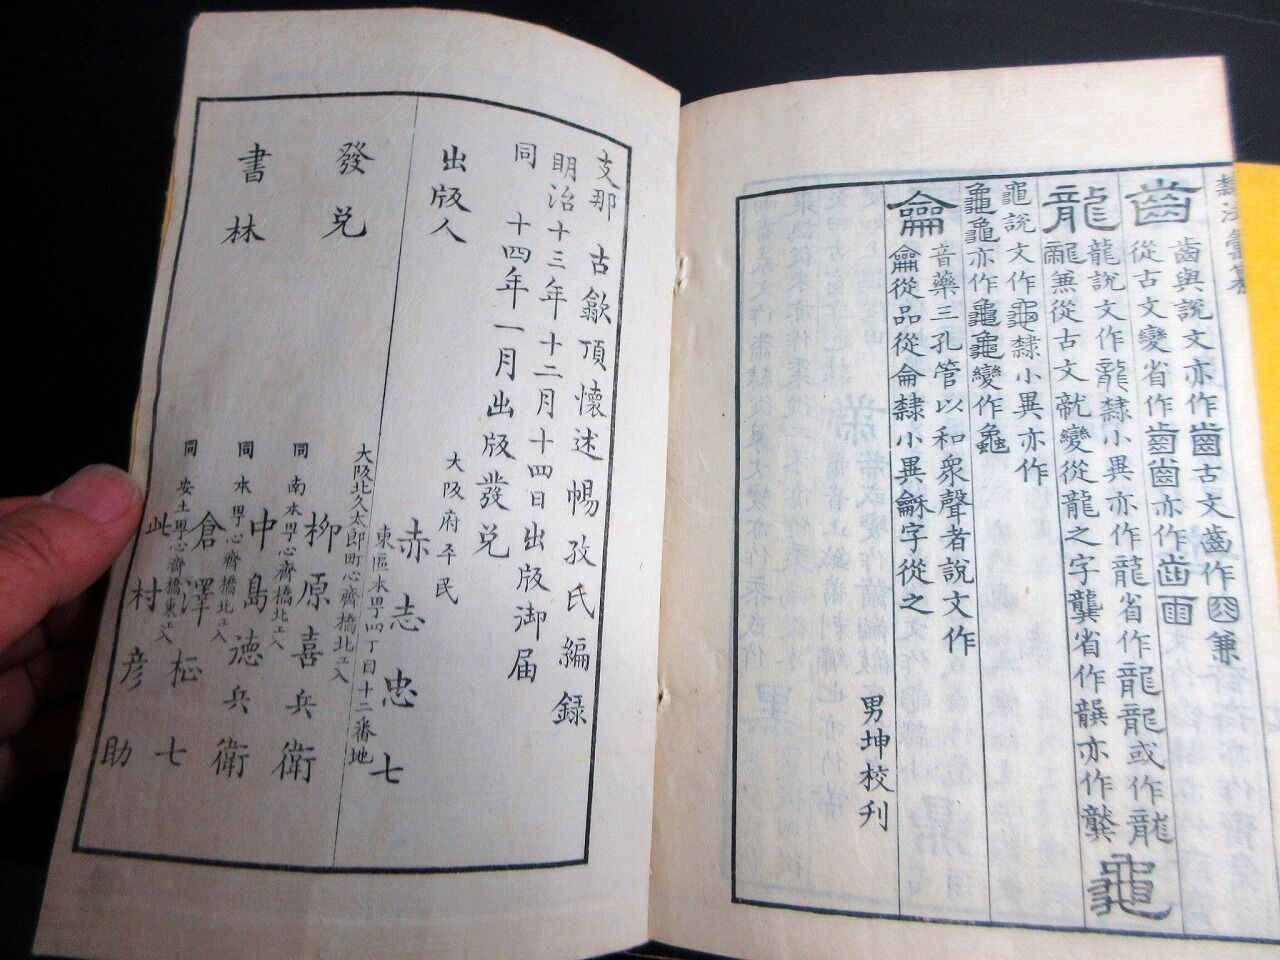 齒
齒與説文亦作齒古文齒作𦥒兼
從古文變省作齒齒亦作齿
龍
龍説文作龍隸小異亦作龍省作龍龍或作龍
兼從古文就變從龍之字龔省作龏亦作龔
龜
龜説文作龜隸小異亦作
龜龜亦作龜龜變作
龠
音藥三孔管以和衆聲者説文作
龠從品從侖隸小異龢字從之
男坤校刊
支那 古歙項懷述惕孜氏編録
明治十三年十二月十四日出版御届
同 十四年一月出版發兌
出版人
大阪府平民
赤志忠七
東區本町四丁目十二番地
發兌
書林
大阪北久太郎町心齊橋北エ入
柳原喜兵衛
同 南本町心齊橋北エ入
中島德兵衛
同 本町心齊橋北エ入
倉澤㭍七
同 安土町心齊橋東エ入
此村彦助